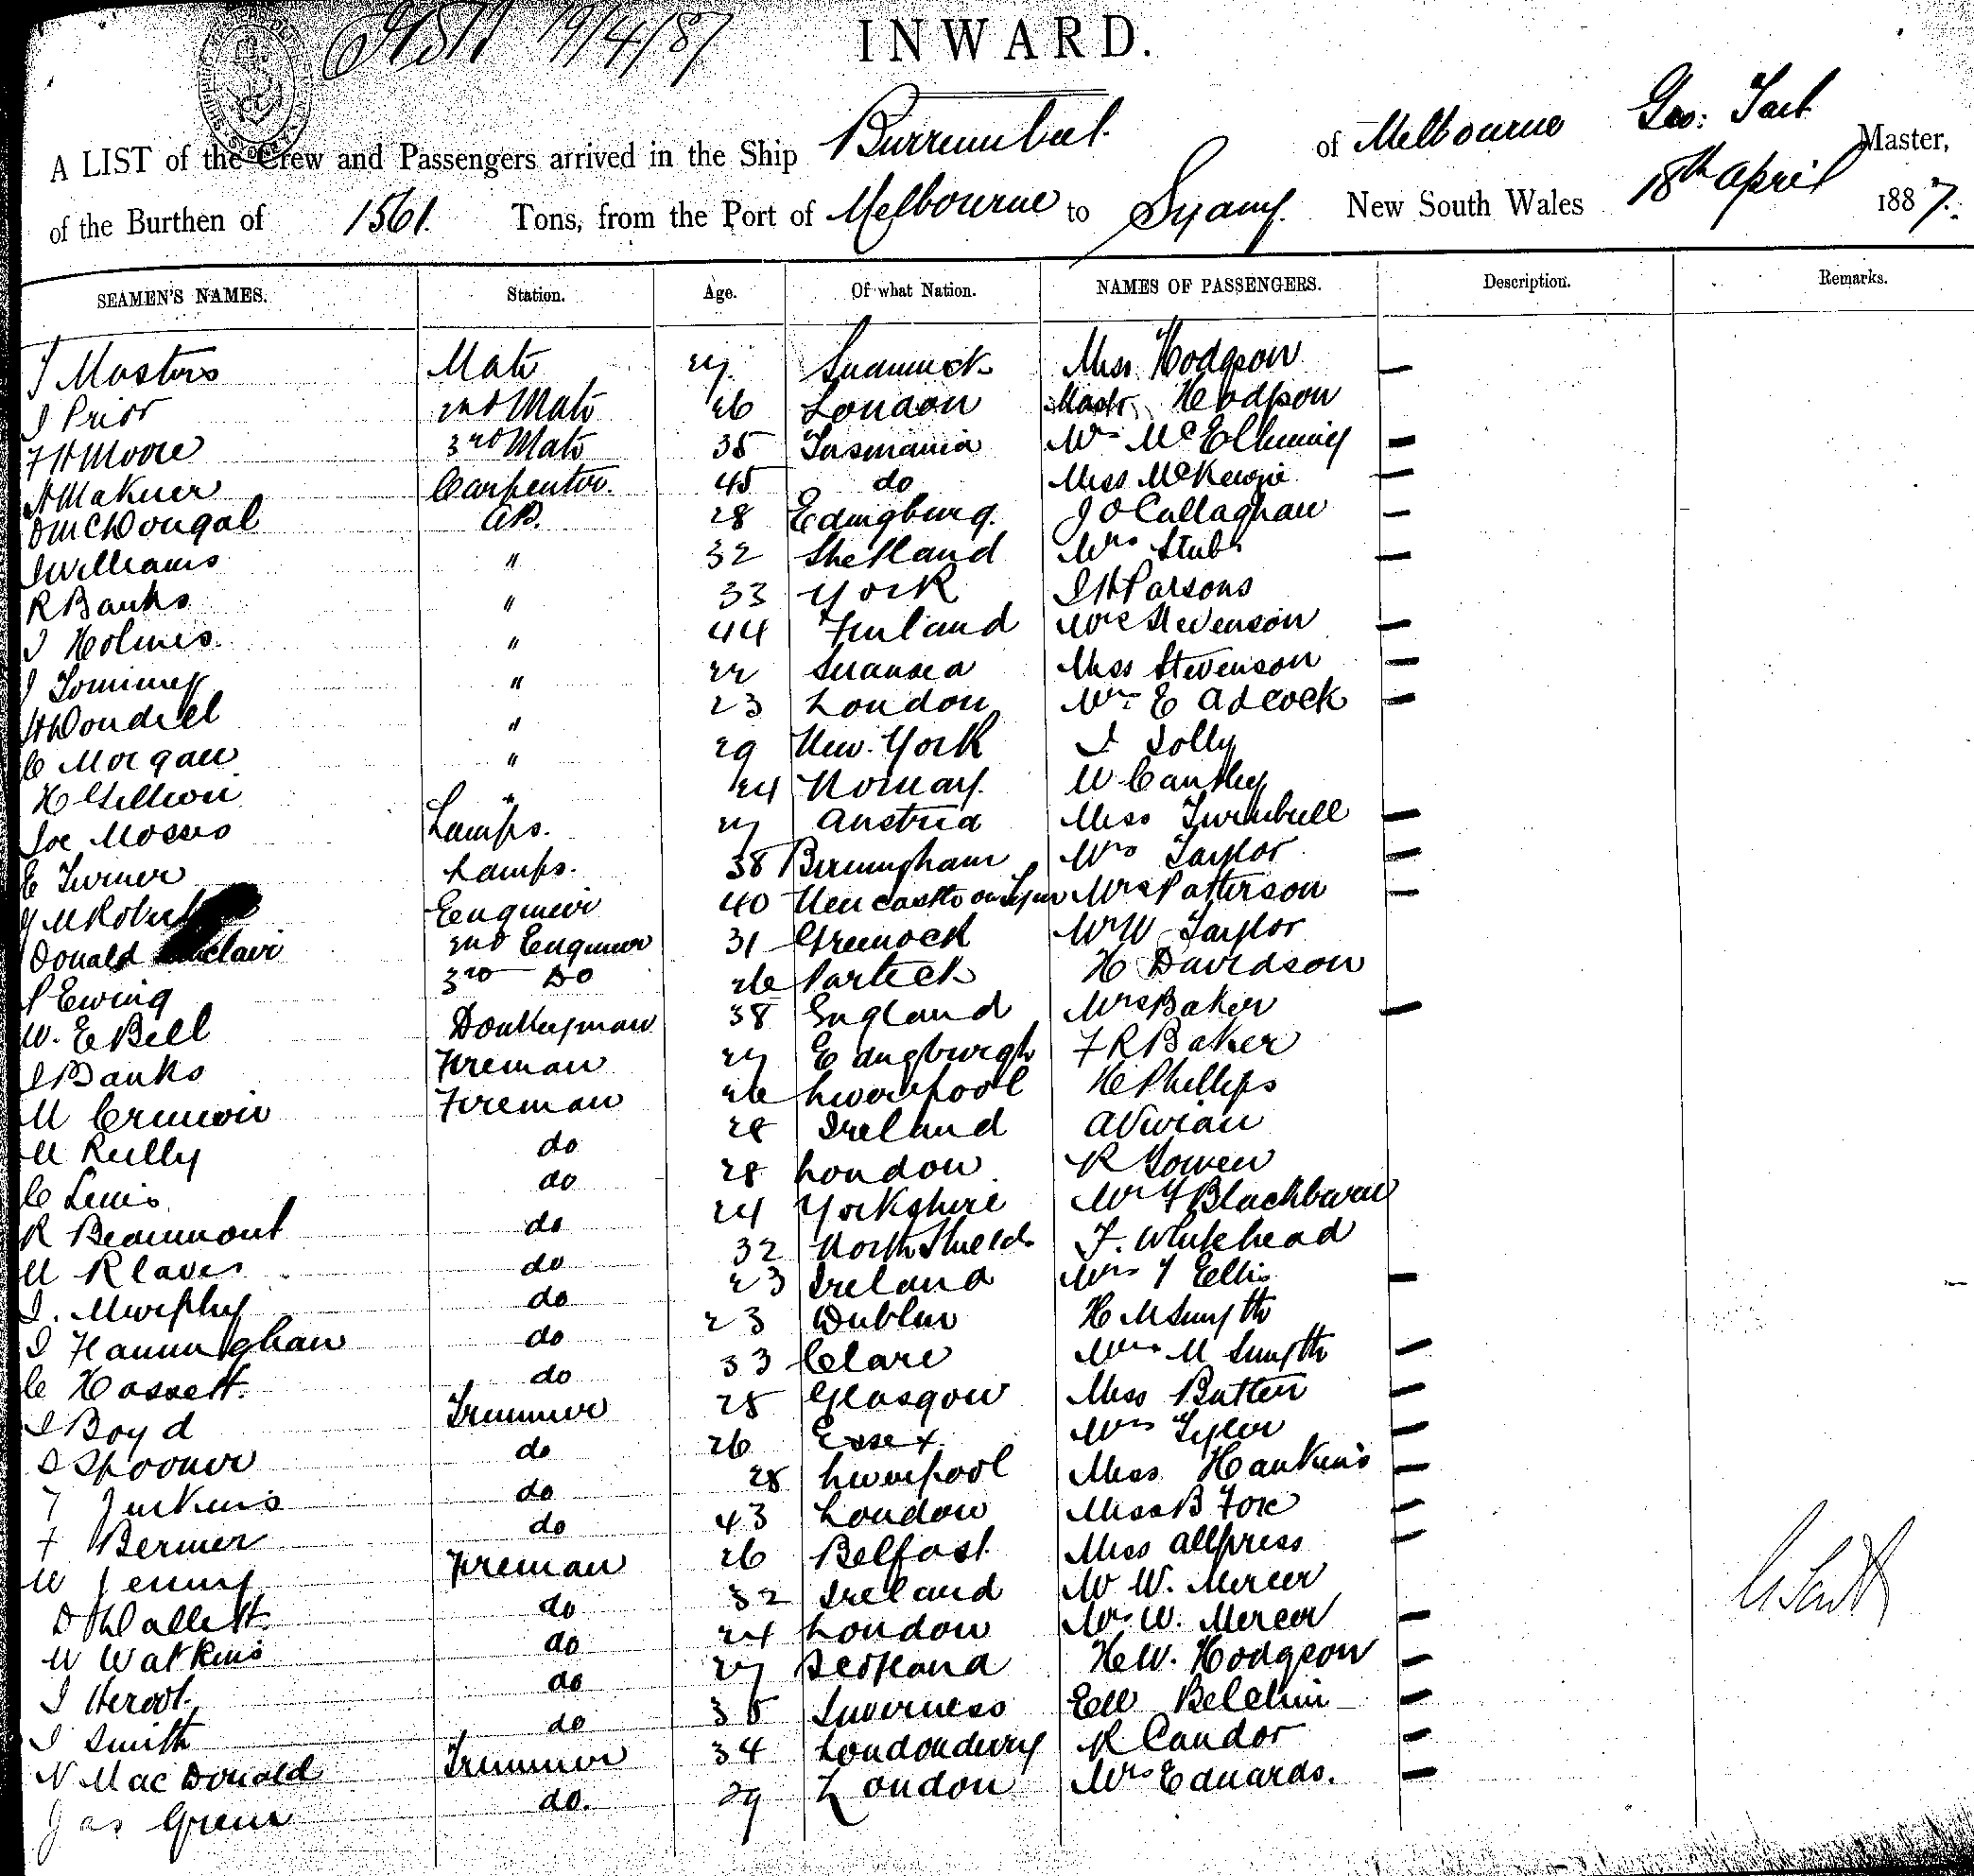 19/4/87
INWARD.
A LIST of the Crew and Passengers arrived in the Ship Burrumbeet of Melbourne Geo: Tait Master,
of the Burthen of 1561. Tons, from the Port of Melbourne to Sydney. New South Wales 18th April 1887.
SEAMEN'S NAMES. Station. Age. Of what Nation. NAMES OF PASSENGERS. Description. Remarks.
J Masters Mate 27 Miss Hodgson —
J Prior 2nd Mate 26 London Master Hodgson
F H Moore 3rd Mate 35 Tasmania —
Carpenter. 45 do Miss McKenzie —
D McDougal AB. 28 Edingburg. J O Callaghan —
J Williams " 32 Shetland Mrs Stubbs —
R Banks " 33 York J H Parsons
J Holmes. " 44 Finland Mrs Stevenson —
J " 22 Swansea Miss Stevenson —
" 23 London Mrs E Adcock —
C Morgan " 29 New York J Jolly
H " 24 Norway. W Cantley
Joe Moses Lamps. 27 Austria Miss Turnbull —
E Turner Lamps. 38 Birmingham Mrs Taylor —
Engineer 40 Newcastle on Tyne Mrs Patterson —
Donald 2nd Engineer 31 Greenock W W Taylor
P Ewing 3rd Do 26 Partick H Davidson
W. E Bell Donkeyman 38 England Mrs Baker —
J Banks Fireman 27 Edingburgh F R Baker
M Fireman 26 Liverpool H Phillips
M Reilly do 28 Ireland A Vivian
C Lewis do 28 London R Gowen
R Beaumont do 24 Yorkshire Blackburn
M do 32 North Shields F. Whitehead
J. Murphy do 23 Ireland Mrs Y Ellis —
J Hanninghan do 23 Dublin H M Smyth
C Hassett. do 33 Clare Mrs M Smyth —
J Boyd Trimmer 28 Glasgow Miss Butten —
J Spooner do 26 Essex Mrs Tyler —
F Jenkins do 28 Liverpool Miss Hankins —
F Bermer do 43 London Miss B Fox —
W Fireman 26 Belfast. Miss Allpress —
D do 32 Ireland W W. Mercer
W Watkins do 24 London Mrs W. Mercer —
J Heroot. do 27 Scotland H W. Hodgson —
J Smith do 35 Inverness —
N MacDonald Trimmer 34 Londonderry R Candor —
Jas Green do. 29 London Mrs Edwards. —